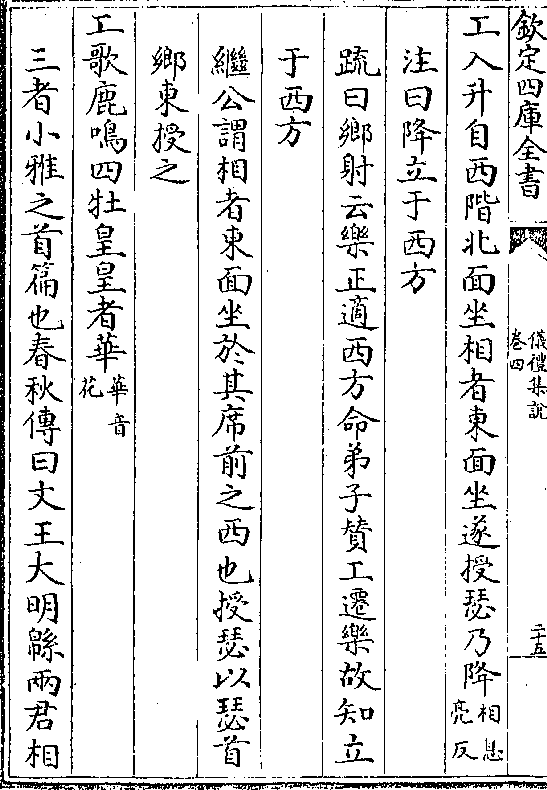 欽定四庫全書
儀禮集說
卷四
二十五
工入升自西階北面坐相者東面坐遂授瑟乃降相息
亮反
注曰降立于西方
疏曰鄉射云樂正適西方命弟子贊工遷樂故知立
于西方
繼公謂相者東面坐於其席前之西也授瑟以瑟首
鄉東授之
工歌鹿鳴四牡皇皇者華華音
花
三者小雅之首篇也春秋傳曰文王大明緜兩君相